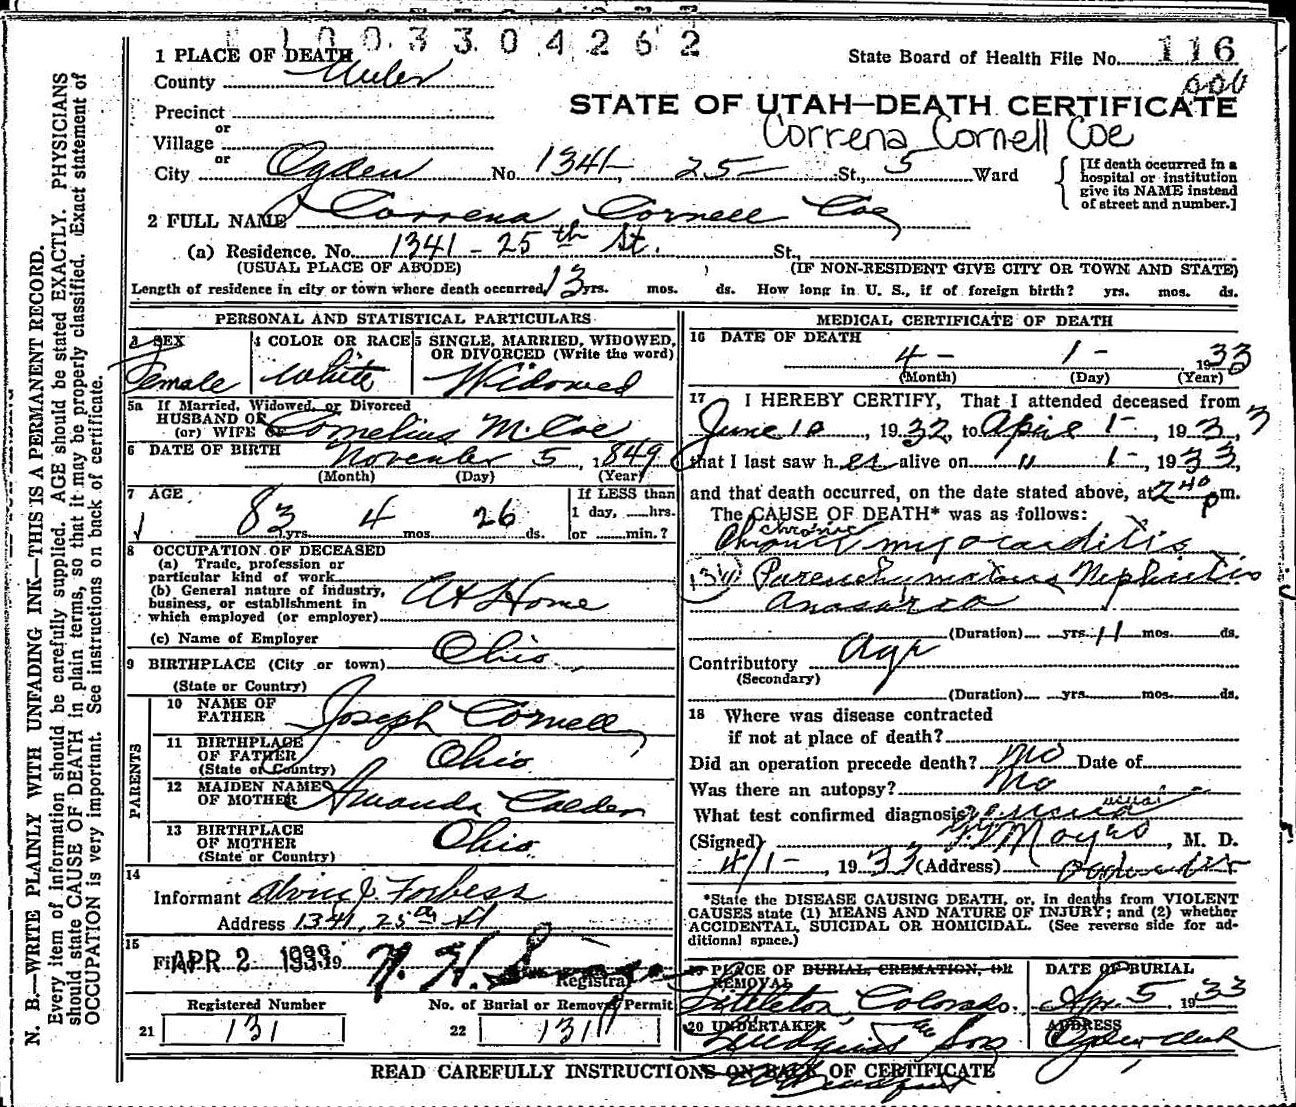 1003304262
1 PLACE OF DEATH
State Board of Health File No. 116
County
000
Precinct
STATE OF UTAH—DEATH CERTIFICATE
or
Correna Cornell Coe
Village
or
City Ogden No. 1341 25 St., 5 Ward
[If death occurred in a hospital or institution give its NAME instead of street and number.]
2 FULL NAME Correna Cornell Coe
(a) Residence. No. 1341 - 25th St. St.,
(USUAL PLACE OF ABODE) (IF NON-RESIDENT GIVE CITY OR TOWN AND STATE)
Length of residence in city or town where death occurred, 13 yrs. mos. ds. How long in U. S., if of foreign birth? yrs. mos. ds.
PERSONAL AND STATISTICAL PARTICULARS
3 SEX
Female
4 COLOR OR RACE
White
5 SINGLE, MARRIED, WIDOWED,
OR DIVORCED (Write the word)
Widowed
5a If Married, Widowed, or Divorced
HUSBAND OF
(or) WIFE OF Cornelius M. Coe
6 DATE OF BIRTH November 5, 1849
(Month) (Day) (Year)
7 AGE
83 yrs. 4 mos. 26 ds.
If LESS than
1 day, hrs.
or min.?
8 OCCUPATION OF DECEASED
(a) Trade, profession or
particular kind of work
(b) General nature of industry,
business, or establishment in
which employed (or employer) At Home
(c) Name of Employer
9 BIRTHPLACE (City or town) Ohio
(State or Country)
PARENTS
10 NAME OF
FATHER Joseph Cornell
11 BIRTHPLACE
OF FATHER Ohio
(State or Country)
12 MAIDEN NAME
OF MOTHER Amanda
13 BIRTHPLACE
OF MOTHER Ohio
(State or Country)
14
Informant J. Forbess
Address 1341, 25th St
15
Filed APR 2 1933 19 N. H.
Registrar
Registered Number
21 131
No. of Burial or Removal Permit
22 131
MEDICAL CERTIFICATE OF DEATH
16 DATE OF DEATH
4 - 1 - 1933
(Month) (Day) (Year)
17 I HEREBY CERTIFY, That I attended deceased from
June 10, 1932, to April 1-, 1933,
that I last saw her alive on " 1-, 1933,
and that death occurred, on the date stated above, at 2 40 p m.
The CAUSE OF DEATH* was as follows:
chronic
Chronic myocarditis
131 Parenchymatous Nephritis
Anasarca
(Duration) yrs. 11 mos. ds.
Contributory Age
(Secondary)
(Duration) yrs. mos. ds.
18 Where was disease contracted
if not at place of death?
Did an operation precede death? No Date of
Was there an autopsy? No
What test confirmed diagnosis? usual
(Signed) , M. D.
4/1-, 1933 (Address)
*State the DISEASE CAUSING DEATH, or, in deaths from VIOLENT
CAUSES state (1) MEANS AND NATURE OF INJURY; and (2) whether
ACCIDENTAL, SUICIDAL OR HOMICIDAL. (See reverse side for ad-
ditional space.)
19 PLACE OF BURIAL, CREMATION, OR
REMOVAL
Littleton, Colorado.
DATE OF BURIAL
Apr. 5 1933
20 UNDERTAKER
Lindquist & Sons
ADDRESS
Ogden Utah
READ CAREFULLY INSTRUCTIONS ON BACK OF CERTIFICATE
N. B.—WRITE PLAINLY WITH UNFADING INK—THIS IS A PERMANENT RECORD.
Every item of information should be carefully supplied. AGE should be stated EXACTLY. PHYSICIANS
should state CAUSE OF DEATH in plain terms, so that it may be properly classified. Exact statement of
OCCUPATION is very important. See instructions on back of certificate.